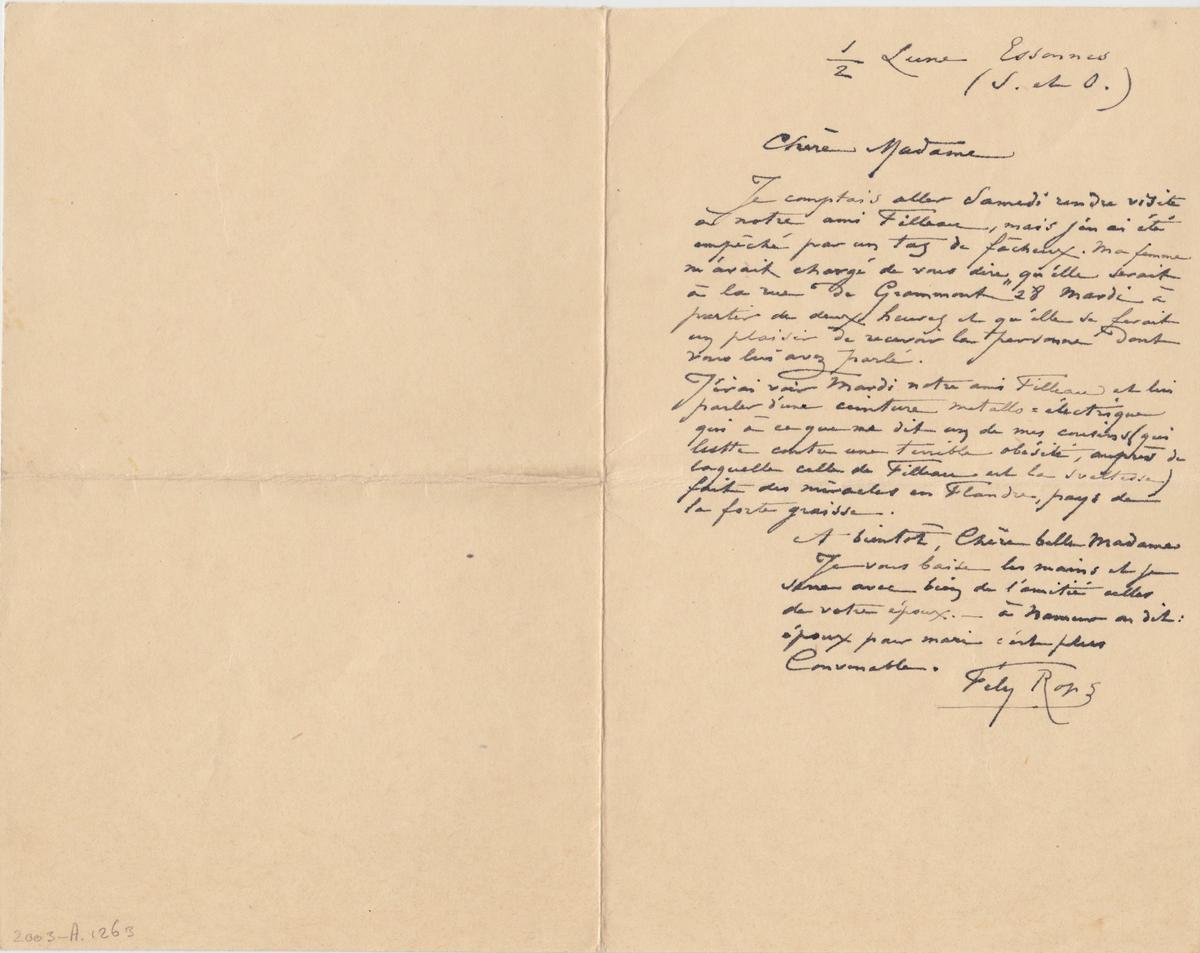 1/2 Lune Essonnes
(S. et O.)
Chère Madame
Je comptais aller Samedi rendre visite
à notre ami Filleau, mais j'en ai été
empêché par un tas de fâcheux. Ma femme
m'avait chargé de vous dire, qu'elle serait
à la rue "de Grammont" 28 Mardi à
partir de deux heures et qu'elle se ferait
un plaisir de recevoir la "personne" dont
vous lui avez parlé.
J'irai voir Mardi notre ami Filleau et lui
parler d'une ceinture metallo=électrique
qui à ce que me dit un de mes cousins (qui
lutte contre une terrible obésité, auprès de
laquelle celle de Filleau est la sveltesse)
fait des miracles en Flandre, pays de
la forte graisse.
A bientôt, Chère belle Madame
Je vous baise les mains et je
serre avec bien de l'amitié celles
de votre époux. — à Namur on dit:
époux pour mari c'est plus
Convenable.
Fély Rops
2003-A.1263